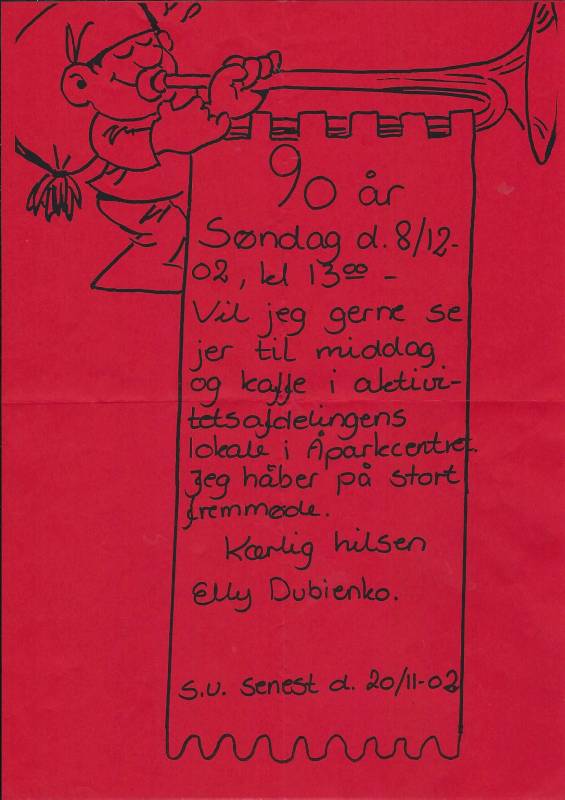 90 år
Søndag d. 8/12-
02, kl 13⁰⁰ -
Vil jeg gerne se
jer til middag
og kaffe i aktivi-
tetsafdelingens
lokale i Åparkcentret.
Jeg håber på stort
fremmøde.
Kærlig hilsen
Elly Dubienko.
S.U. senest d. 20/11-02